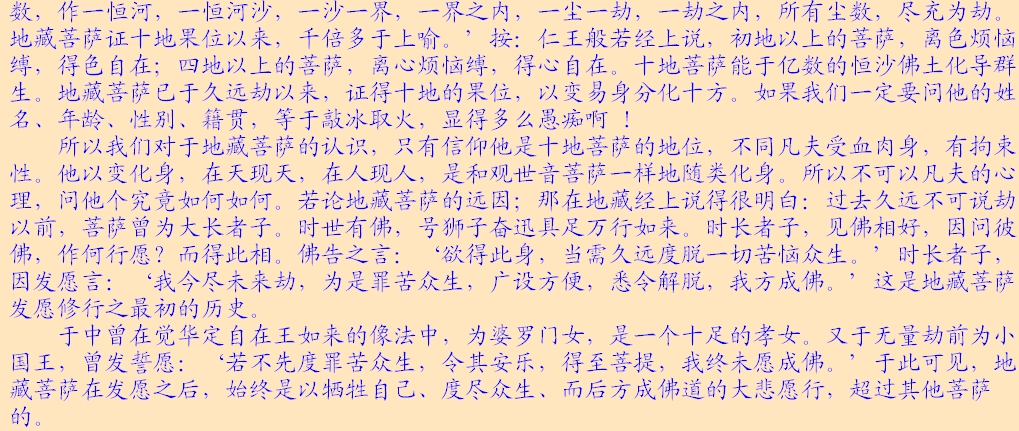 数，作一恒河，一恒河沙，一沙一界，一界之内，一尘一劫，一劫之内，所有尘数，尽充为劫。
地藏菩萨证十地果位以来，千倍多于上喻。’按：仁王般若经上说，初地以上的菩萨，离色烦恼
缚，得色自在；四地以上的菩萨，离心烦恼缚，得心自在。十地菩萨能于亿数的恒沙佛土化导群
生。地藏菩萨已于久远劫以来，证得十地的果位，以变易身分化十方。如果我们一定要问他的姓
名、年龄、性别、籍贯，等于敲冰取火，显得多么愚痴啊 ！
所以我们对于地藏菩萨的认识，只有信仰他是十地菩萨的地位，不同凡夫受血肉身，有拘束
性。他以变化身，在天现天，在人现人，是和观世音菩萨一样地随类化身。所以不可以凡夫的心
理，问他个究竟如何如何。若论地藏菩萨的远因；那在地藏经上说得很明白：过去久远不可说劫
以前，菩萨曾为大长者子。时世有佛，号狮子奋迅具足万行如来。时长者子，见佛相好，因问彼
佛，作何行愿？而得此相。佛告之言：‘欲得此身，当需久远度脱一切苦恼众生。’时长者子，
因发愿言：‘我今尽未来劫，为是罪苦众生，广设方便，悉令解脱，我方成佛。’这是地藏菩萨
发愿修行之最初的历史。
于中曾在觉华定自在王如来的像法中，为婆罗门女，是一个十足的孝女。又于无量劫前为小
国王，曾发誓愿：‘若不先度罪苦众生，令其安乐，得至菩提，我终未愿成佛。’于此可见，地
藏菩萨在发愿之后，始终是以牺牲自己、度尽众生、而后方成佛道的大悲愿行，超过其他菩萨
的。